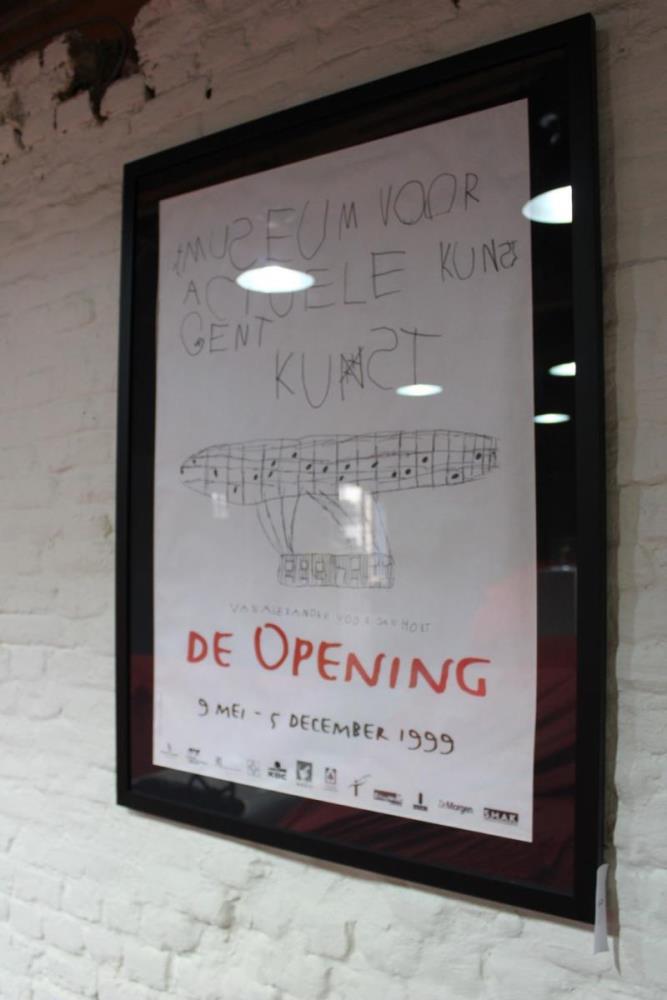 MUSEUM VOOR
ACTUELE KUNST
GENT
KUNST
VAN ALEXANDER VOOR JAN HOET
DE OPENING
9 MEI - 5 DECEMBER 1999
KBC
De Morgen
S.M.A.K.